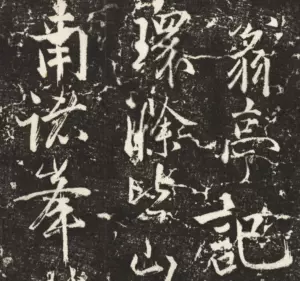 翁亭記
環滁皆山
南諸峯